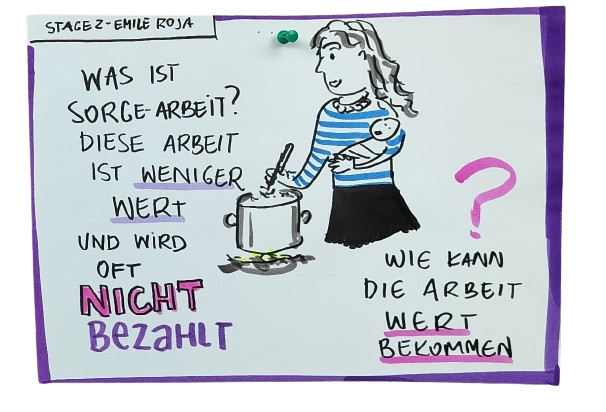 STAGE 2-EMILE ROJA
WAS IST
SORGE-ARBEIT?
DIESE ARBEIT
IST WENIGER
WERT
UND WIRD
OFT
NICHT
BEZAHLT
?
WIE KANN
DIE ARBEIT
WERT
BEKOMMEN